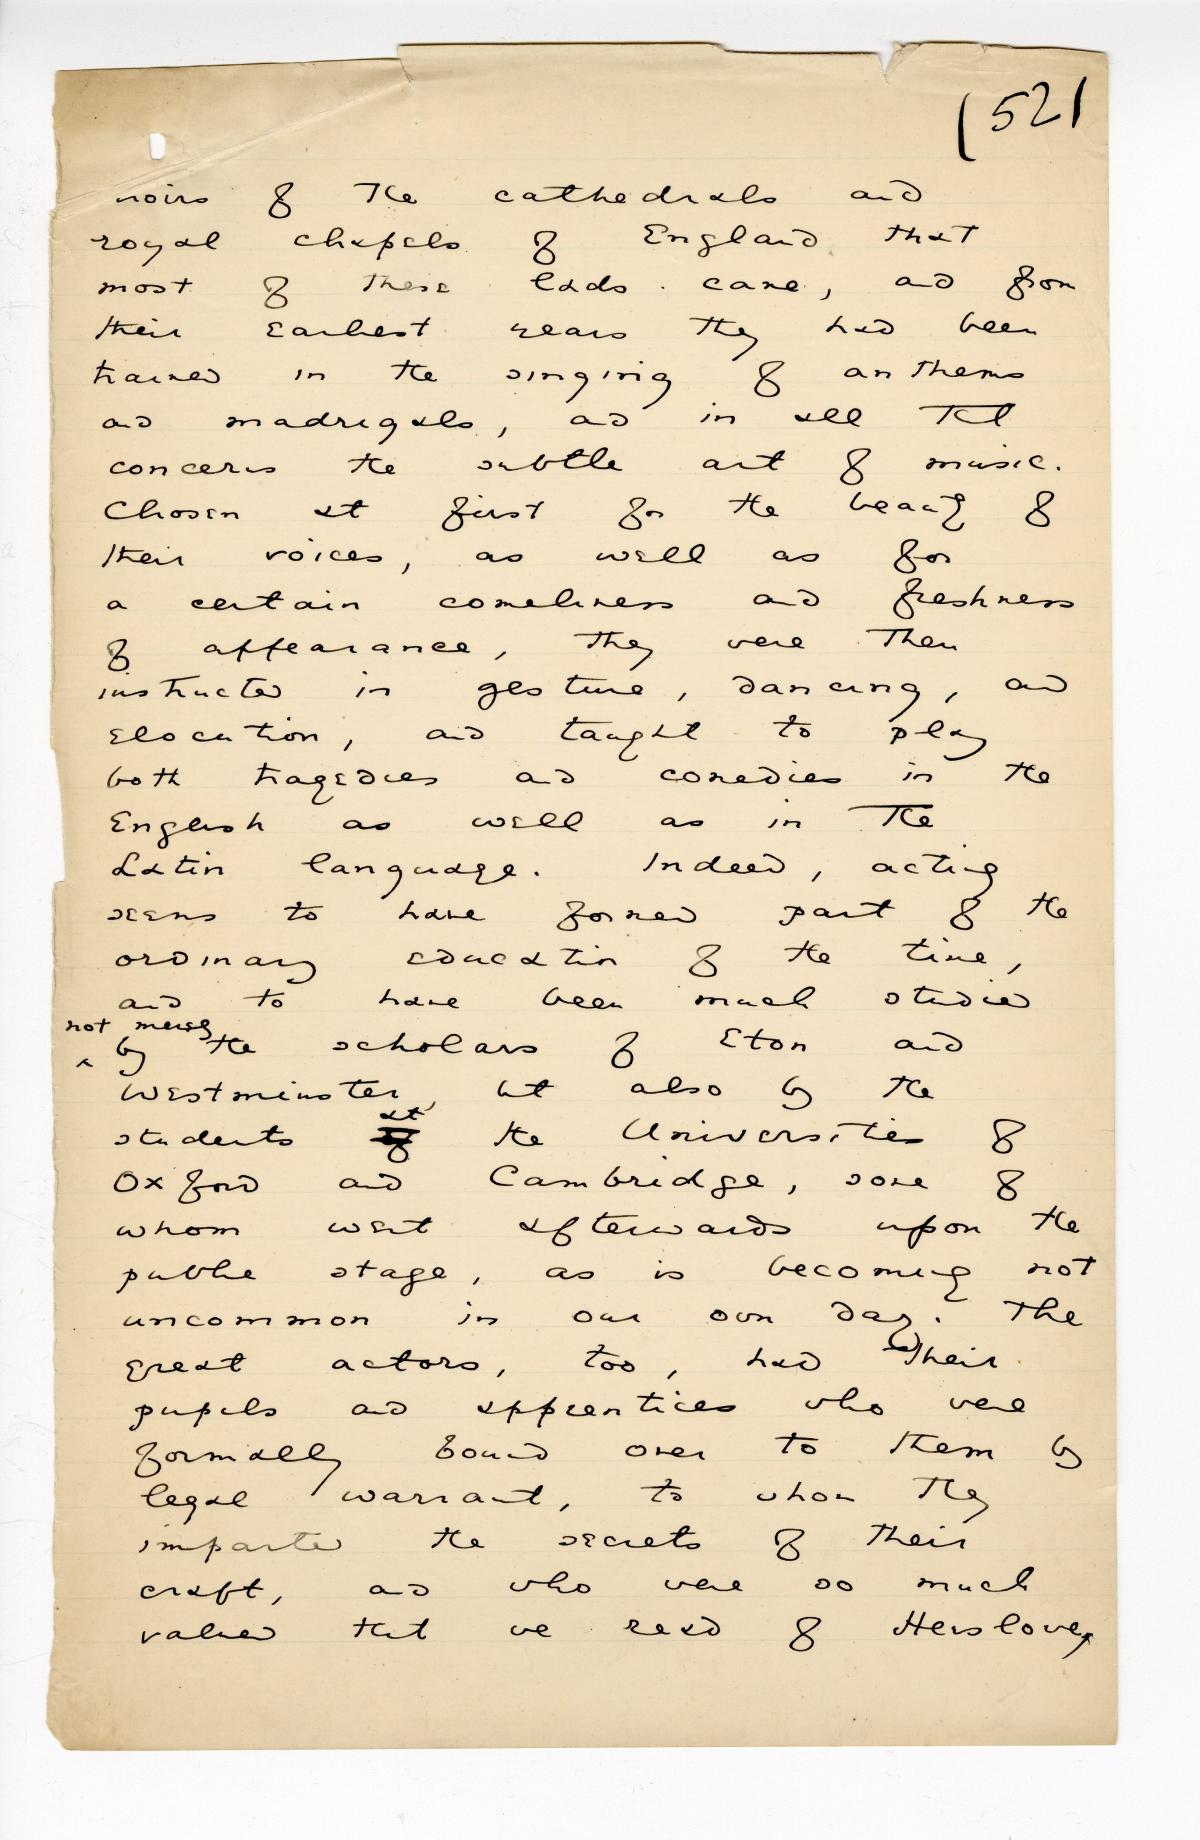 (52)
hoirs of the cathedrals and
royal chapels of England that
most of these lads came, and from
their earliest years they had been
trained in the singing of anthems
and madrigals, and in all that
concerns the subtle art of music.
Chosen at first for the beauty of
their voices, as well as for
a certain comeliness and freshness
of appearance, they were then
instructed in gesture, dancing, and
elocution, and taught to play
both tragedies and comedies in the
English as well as in the
Latin language. Indeed, acting
seems to have formed part of the
ordinary education of the time,
and to have been much studied
not merely
by the scholars of Eton and
Westminster, but also by the
at
students of the Universities of
Oxford and Cambridge, some of
whom went afterwards upon the
public stage, as is becoming not
uncommon in our own day. The
great actors, too, had their
pupils and apprentices who were
formally bound over to them by
legal warrant, to whom they
imparted the secrets of their
craft, and who were so much
valued that we read of Henslowe,